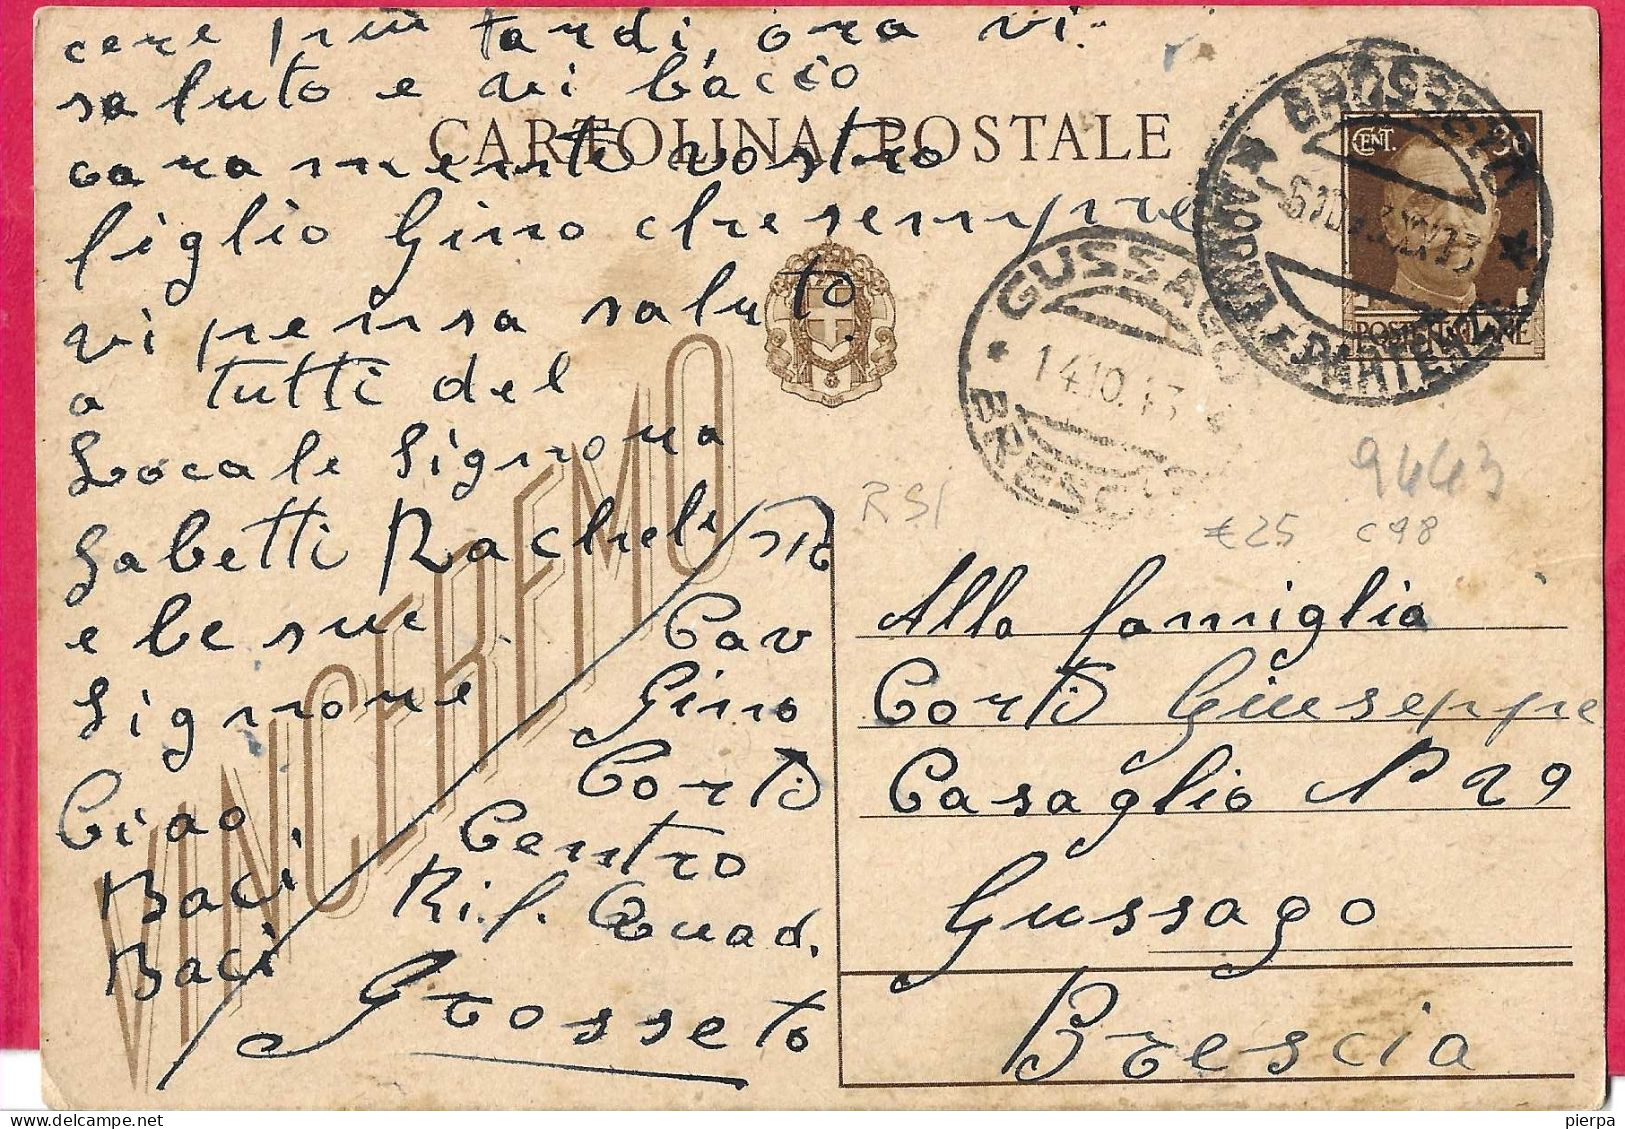 cere più tardi, ora vi
saluto e vi bacio
caramente vostro
figlio Gino che sempre
vi pensa saluto
a tutti del
Locale Signora
Gabetti Rachele
e le sue
Signore
Ciao,
Baci
Baci
Cav
Gino
Corti
Centro
Rif. Quad.
Grosseto
CARTOLINA POSTALE
VINCEREMO
CENT. 30
POSTE ITALIANE
GROSSETO
GUSSAGO
14.10.43
BRESC
9443
RSI
€25 C98
Alla famiglia
Corti Giuseppe
Casaglio N 29
Gussago
Brescia
pierpa